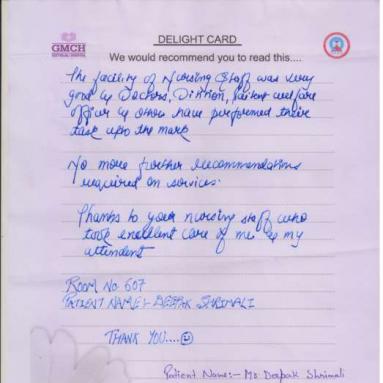 GMCH
DELIGHT CARD
We would recommend you to read this....
The facility of Nursing Staff was very
good by Doctors, Dietion, Patient welfare
officer by others have performed their
task upto the mark
No more further recommendations
required on services.
Thanks to your nursing staff who
took excellent care of me as my
attendent
ROOM No 607
PATIENT NAME:- DEEPAK SHRIMALI
THANK YOU....
Patient Name:- Mr Deepak Shrimali